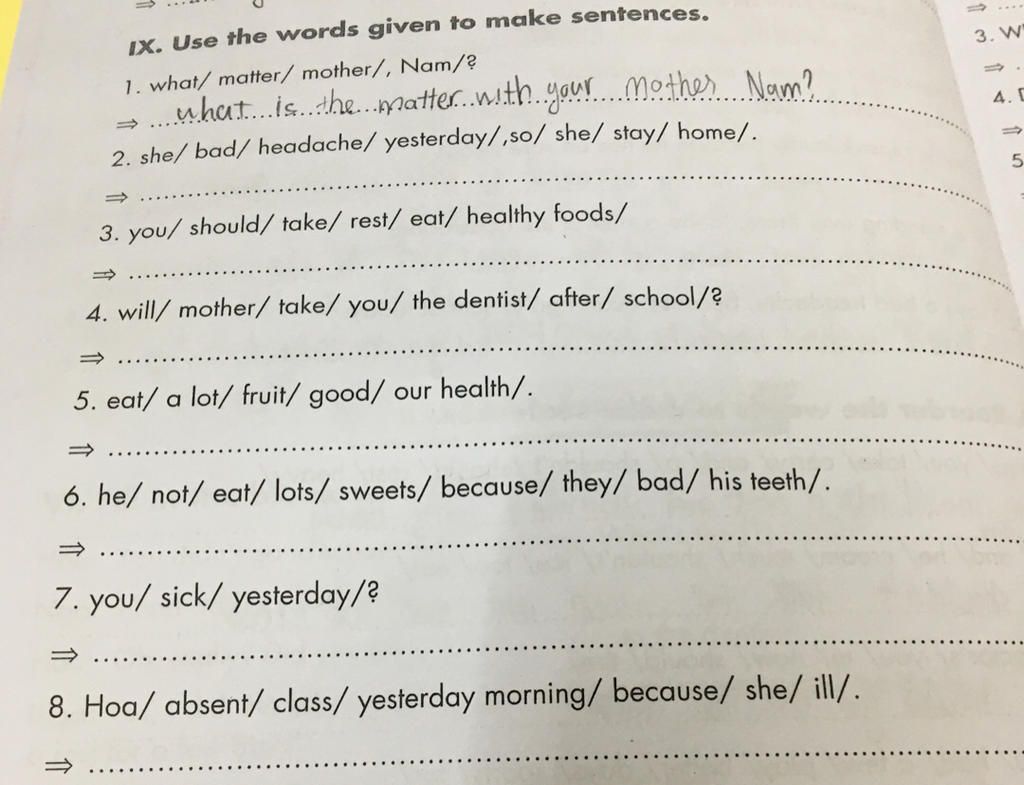 ⇒ ....
IX. Use the words given to make sentences.
1. what/ matter/ mother/, Nam/?
⇒ ...what is the matter with your mother Nam?
2. she/ bad/ headache/ yesterday/,so/ she/ stay/ home/.
⇒ ....
3. you/ should/ take/ rest/ eat/ healthy foods/
⇒ ....
4. will/ mother/ take/ you/ the dentist/ after/ school/?
⇒ ....
5. eat/ a lot/ fruit/ good/ our health/.
⇒ ....
6. he/ not/ eat/ lots/ sweets/ because/ they/ bad/ his teeth/.
⇒ ....
7. you/ sick/ yesterday/?
⇒ ....
8. Hoa/ absent/ class/ yesterday morning/ because/ she/ ill/.
⇒ ....
⇒ ....
3.
⇒
4.
⇒
5